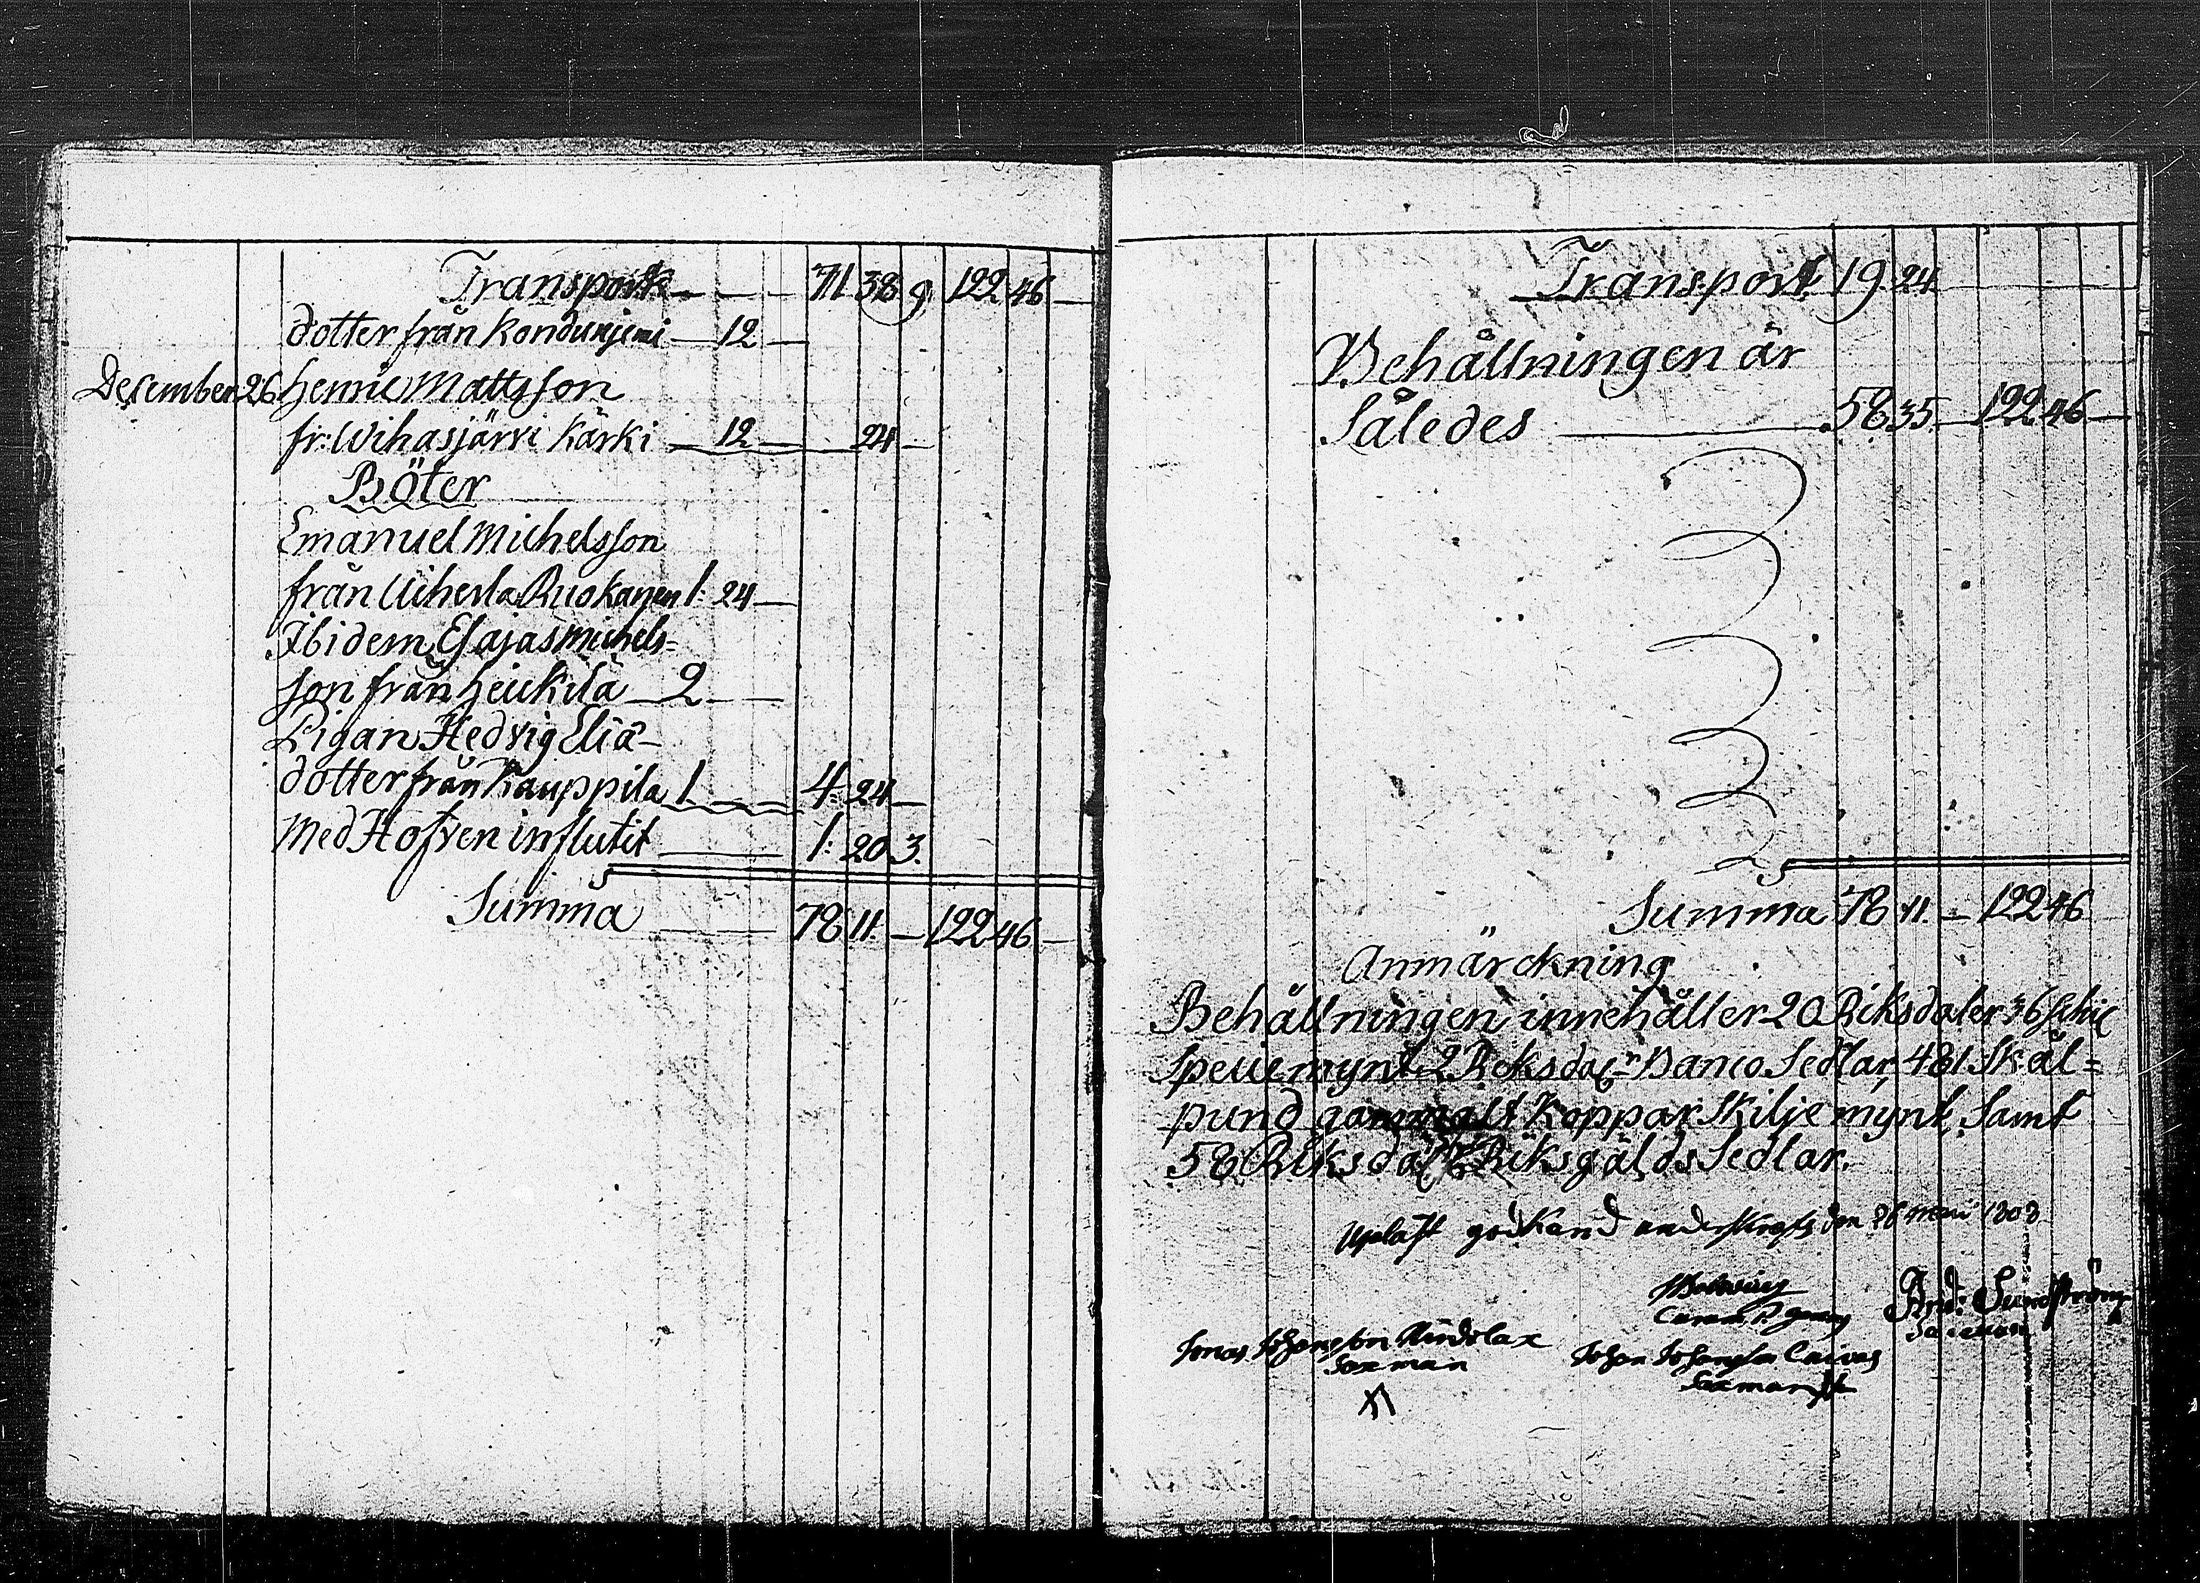 Transport 71 38 9. 122 46
dotter från Kondunjemi 12
December 26 Henric Mattsson
fr: Wihasjärvi Kärki 12 24
Böter
Emanuel Michelsson
från Uiherla Ruokanen 1: 24
Ibidem Esajas Michels=
son från Heickilä 2
Pigan Hedvig Eliæ
dotter från Kauppila 1 4: 24
Med Hofven influtit 1: 20 3.
Summa 78 11. 122 46
Transport 19. 24.
Behållningen är
Således 58 35. 122 46
Summa 78 11. 122 46
Anmärckning
Behållningen innehåller 20 Riksdaler 36 Schil
Speciemynt 2 Riksdal:r Banco Sedlar, 481 Skål=
pund gammalt Koppar Skiljemynt, Samt
58 Riksdal:r Riksgälds Sedlar.
Upläst godkänd underskrifts den 26 Maii 1808
And: Sundström
Jonas Johansson
Sexman
Johan Johansson Caivas
Sexman